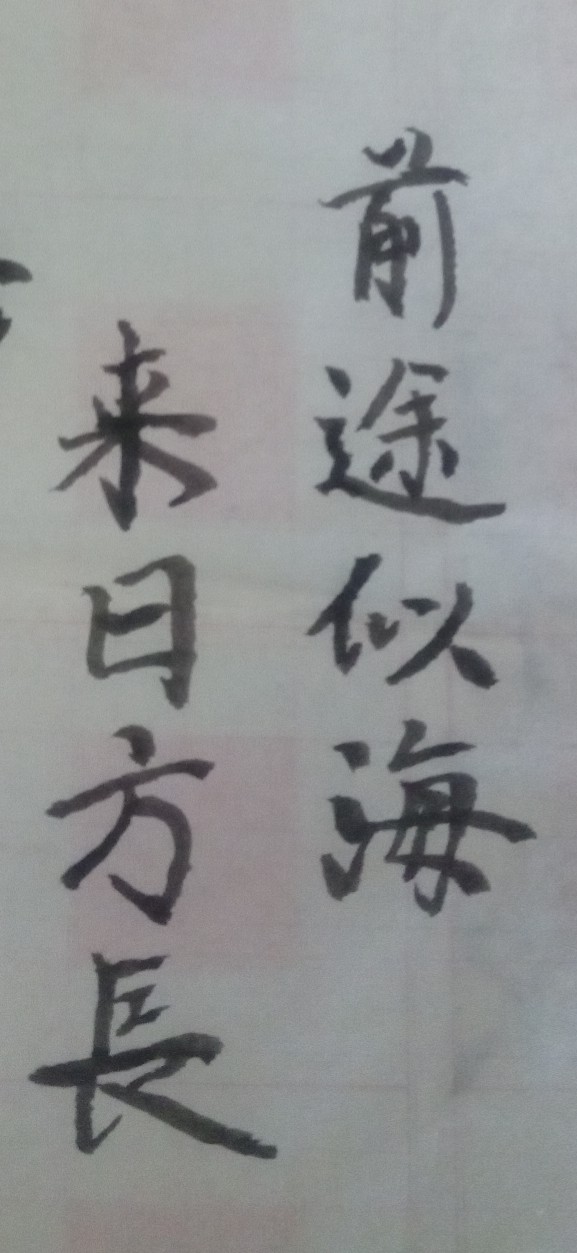 前途似海
来日方長